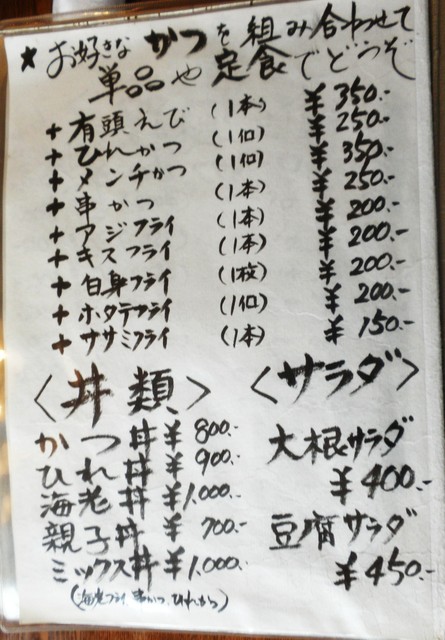 ★ お好きな かつを組み合わせて
単品や定食でどうぞ
+ 有頭えび (1本) ¥350.-
+ ひれかつ (1ヶ) ¥250.-
+ メンチかつ (1ヶ) ¥350.-
+ 串かつ (1本) ¥250.-
+ アジフライ (1本) ¥200.-
+ キスフライ (1本) ¥200.-
+ 白身フライ (1枚) ¥200.-
+ ホタテフライ (1ヶ) ¥200.-
+ ササミフライ (1本) ¥150.-
〈丼類〉
かつ丼 ¥800.-
ひれ丼 ¥900.-
海老丼 ¥1,000.-
親子丼 ¥700.-
ミックス丼 ¥1,000.-
(海老フライ、串かつ、ひれかつ)
〈サラダ〉
大根サラダ
¥400.-
豆腐サラダ
¥450.-